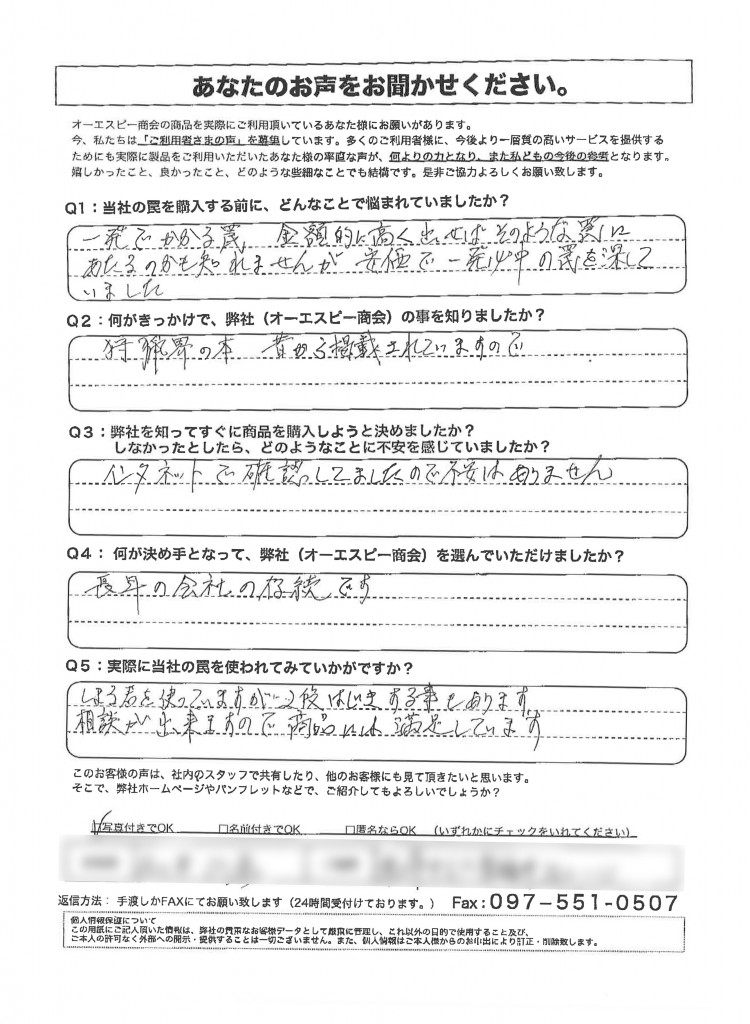 あなたのお声をお聞かせください。
オーエスピー商会の商品を実際にご利用頂いているあなた様にお願いがあります。
今、私たちは「ご利用者さまの声」を募集しています。多くのご利用者様に、今後より一層質の高いサービスを提供する
ためにも実際に製品をご利用いただいたあなた様の率直な声が、何よりの力となり、また私どもの今後の参考となります。
嬉しかったこと、良かったこと、どのような些細なことでも結構です。是非ご協力よろしくお願い致します。
Q1：当社の罠を購入する前に、どんなことで悩まれていましたか？
一発でかかる罠 金額的に高く出せばそのような罠に
あたるのかも知れませんが 安価で一発必中の罠を探して
いました
Q2：何がきっかけで、弊社（オーエスピー商会）の事を知りましたか？
狩猟界の本 昔から掲載されていますので
Q3：弊社を知ってすぐに商品を購入しようと決めましたか？
しなかったとしたら、どのようなことに不安を感じていましたか？
インタネットで確認してましたので不安はありません
Q4： 何が決め手となって、弊社（オーエスピー商会）を選んでいただけましたか？
長年の会社の存続です
Q5：実際に当社の罠を使われてみていかがですか？
しまる君を使っていますが 空はじきする事もあります
相談が出来ますので商品には満足しています
このお客様の声は、社内のスタッフで共有したり、他のお客様にも見て頂きたいと思います。
そこで、弊社ホームページやパンフレットなどで、ご紹介してもよろしいでしょうか？
☑写真付きでOK □名前付きでOK □匿名ならOK （いずれかにチェックをいれてください）
返信方法： 手渡しかFAXにてお願い致します（24時間受付ております。） Fax：097-551-0507
個人情報保護について
この用紙にご記入頂いた情報は、弊社の貴重なお客様データとして厳重に管理し、これ以外の目的で使用すること及び、
ご本人の許可なく外部への開示・提供することは一切ございません。また、個人情報はご本人様からのお申出により訂正・削除致します。